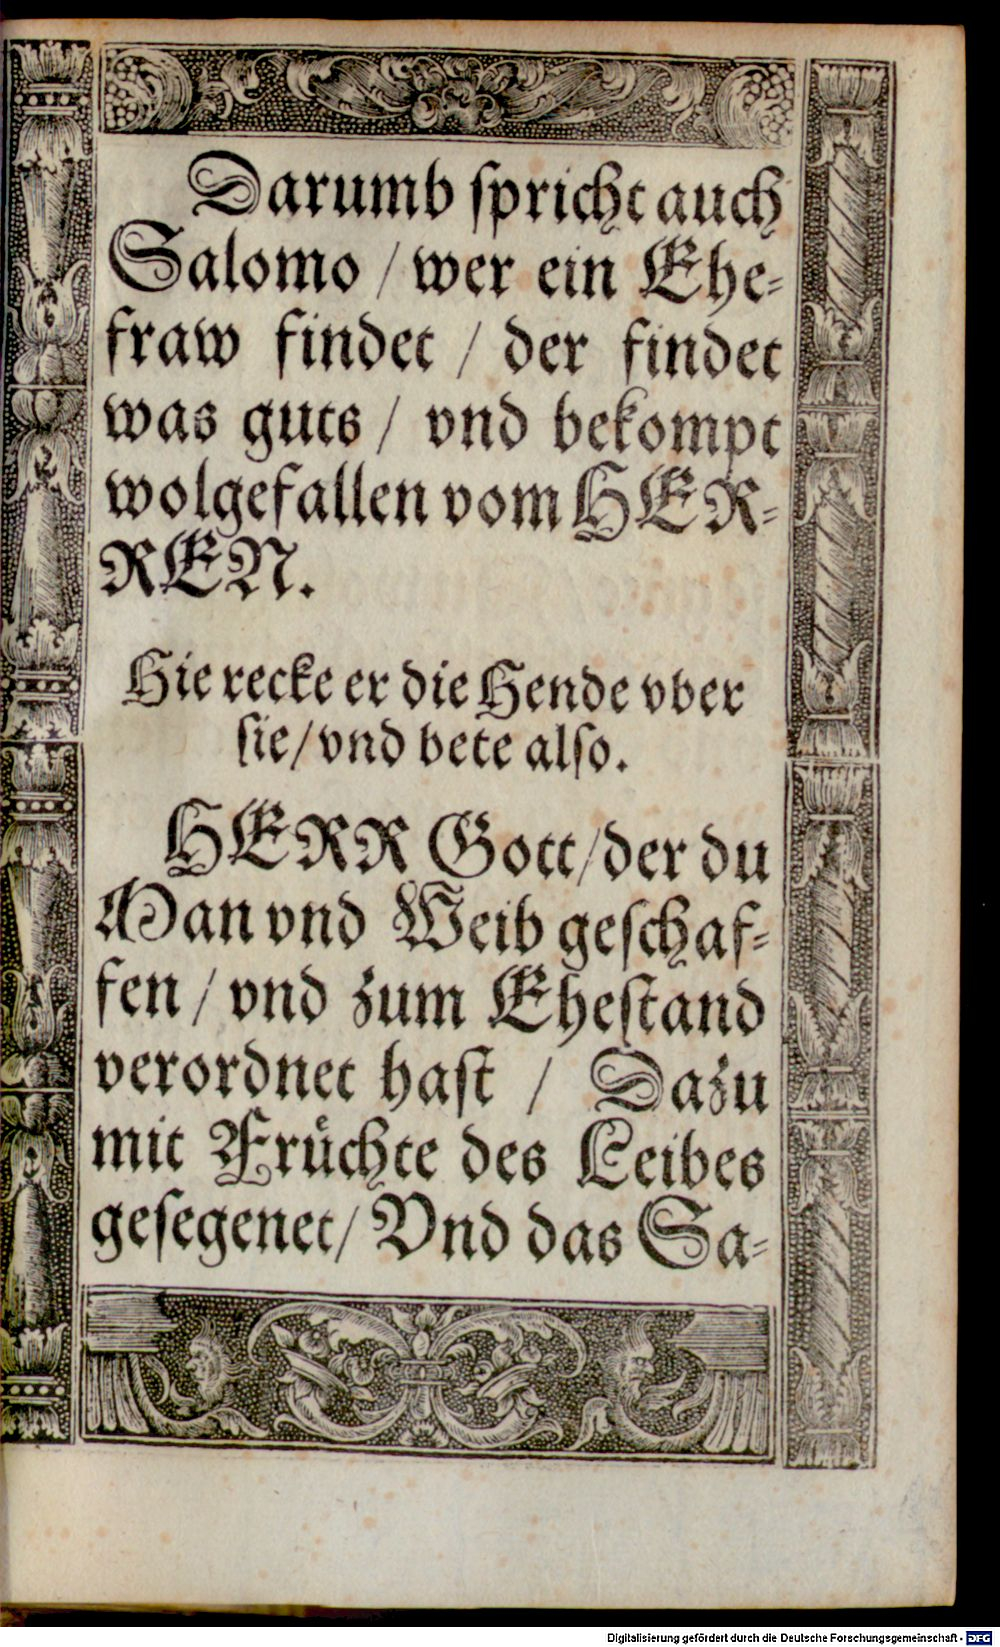 Darumb ſpricht auch
Salomo / wer ein Ehe⸗
fraw findet / der findet
was guts / vnd bekompt
wolgefallen vom HER⸗
REN.
Hie recke er die Hende vber
ſie / vnd bete alſo.
HERR Gott / der du
Man vnd Weib geſchaf⸗
fen / vnd zum Eheſtand
verordnet haſt / Dazu
mit Früchte des Leibes
geſegenet / Vnd das Sa⸗
Digitalisierung gefördert durch die Deutsche Forschungsgemeinschaft - DFG